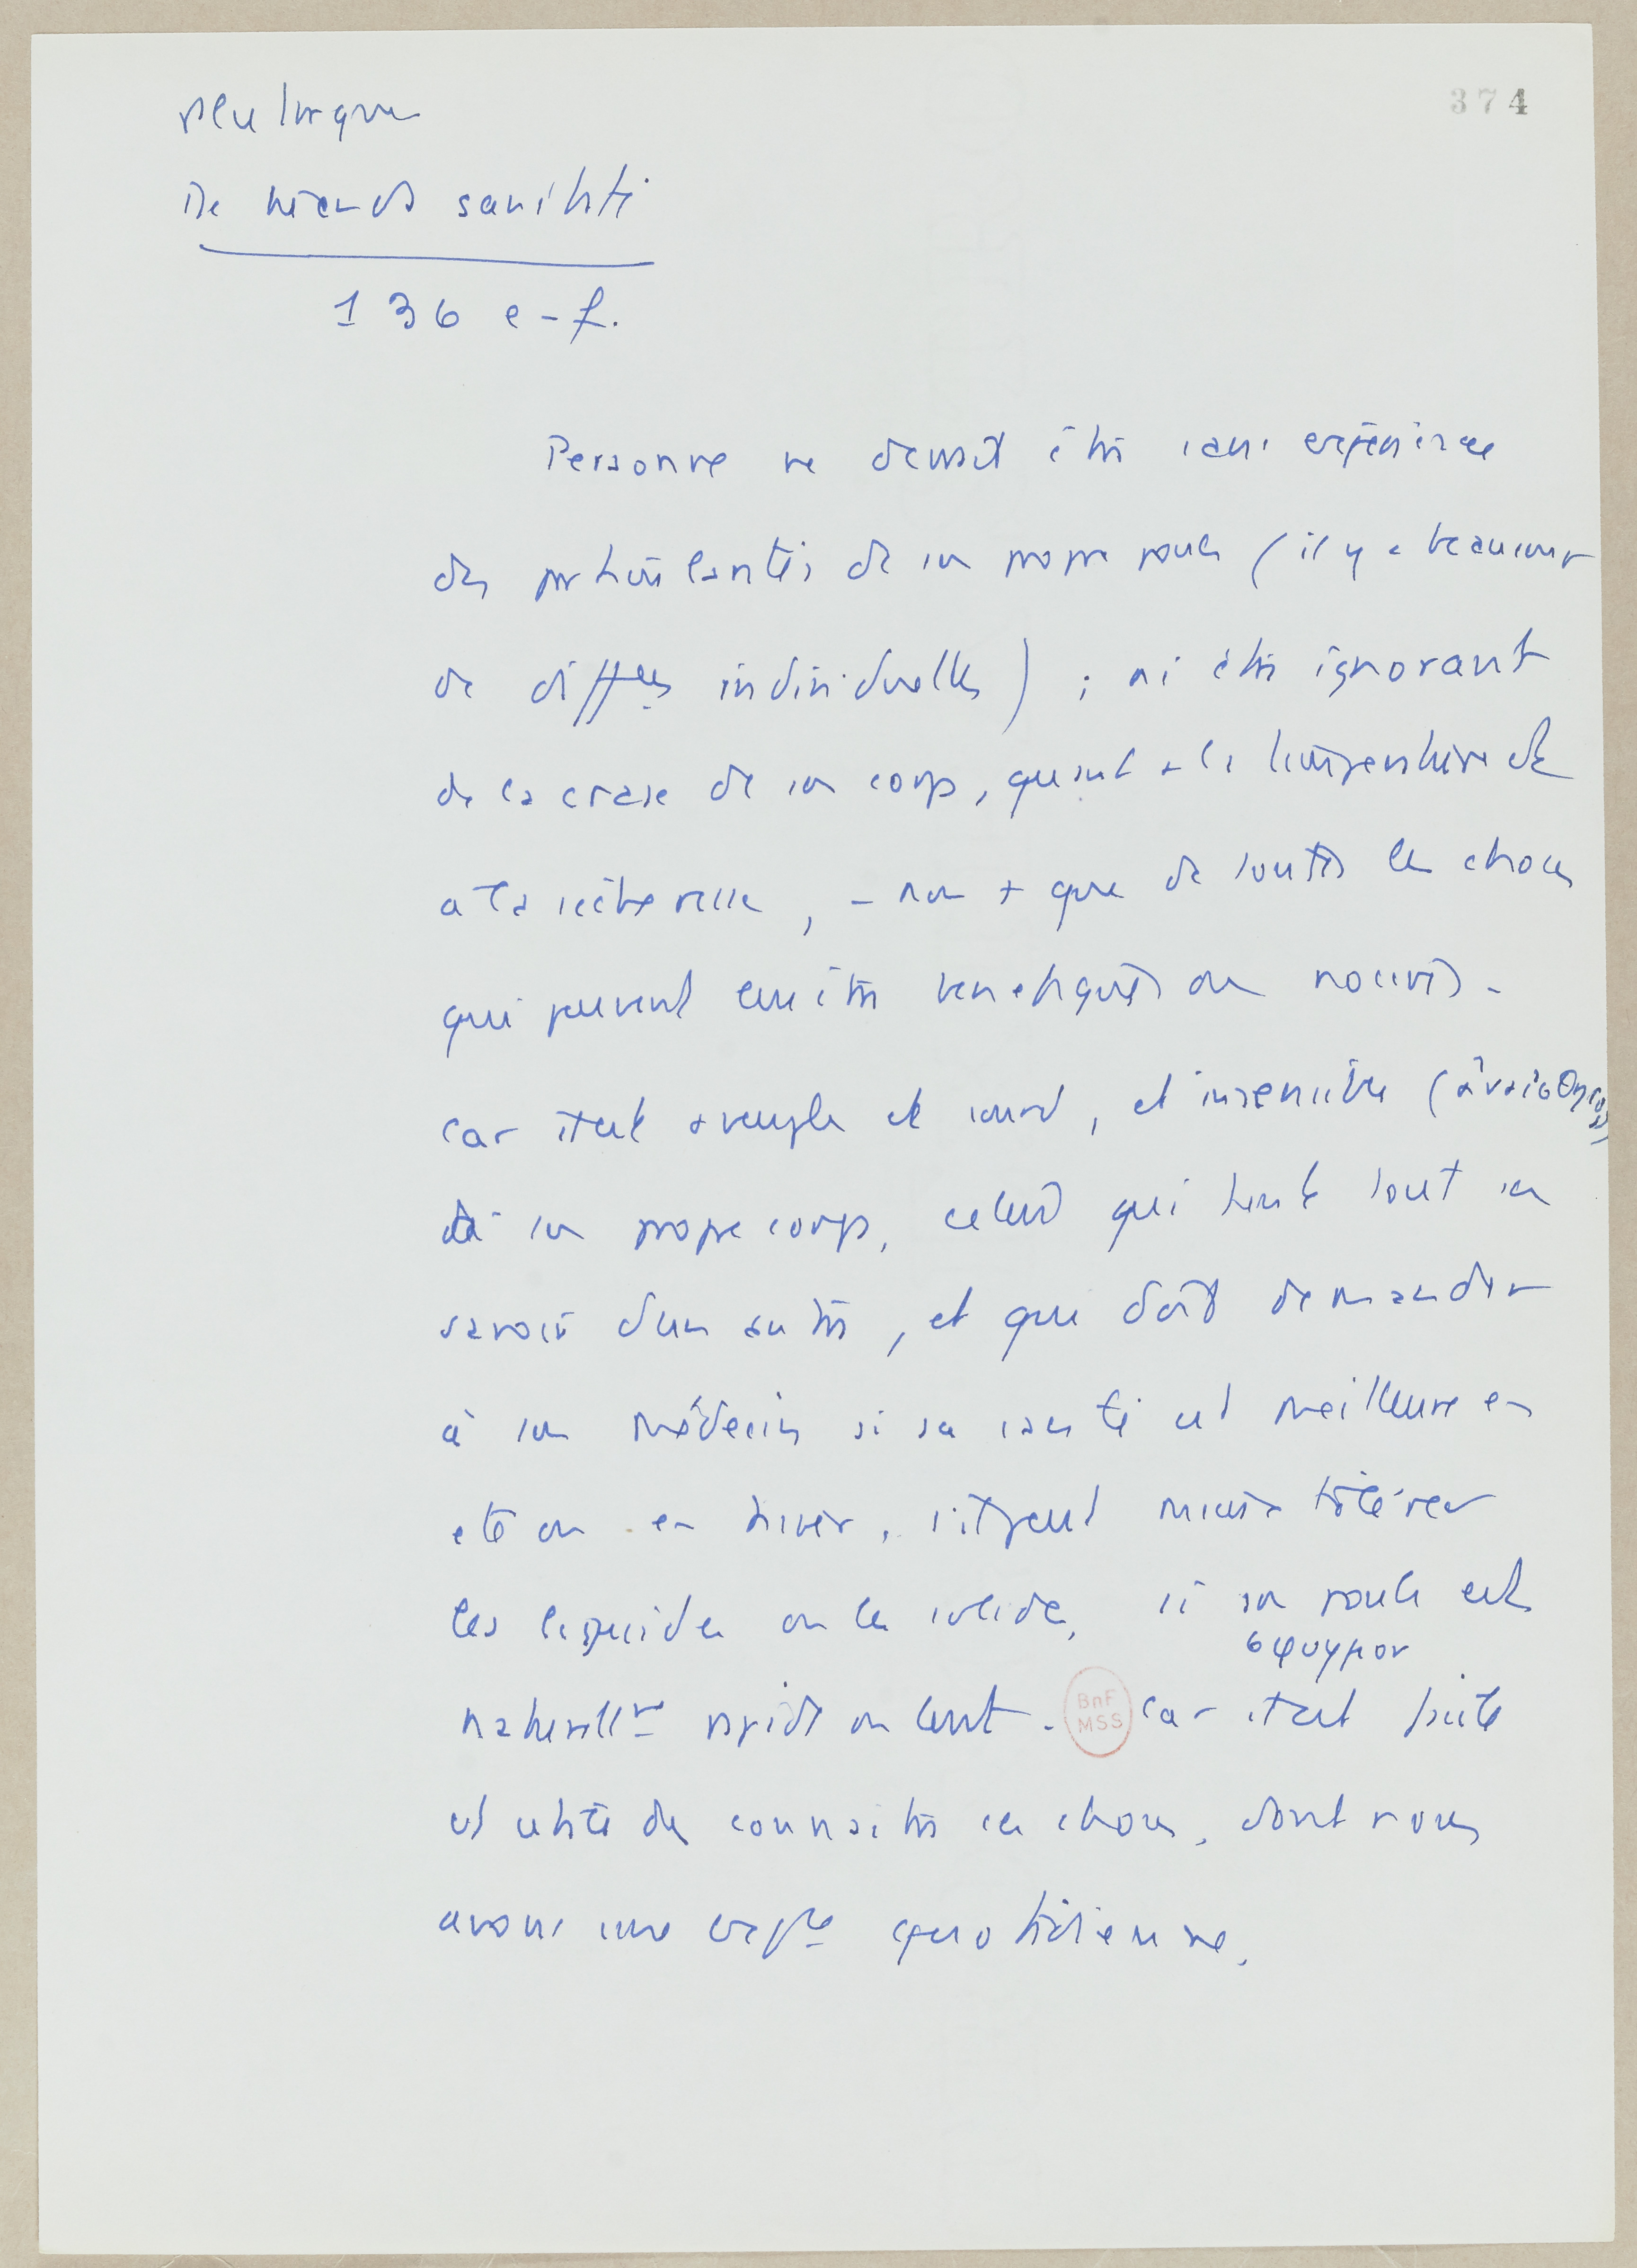 374
Plutarque
De tuenda sanitate
136 e-f.
Personne ne devrait être sans expérience
des particularités de son propre pouls (il y a beaucoup
de diffces individuelles) ; ni être ignorant
de la crase de son corps, quant à la température et
à la sécheresse, - non + que de toutes les choses
qui peuvent lui être bénéfiques ou nocives.
Car il est aveugle et sourd, et insensible (ἀναίσθητος)
à son propre corps, celui qui tout son
savoir d'un autre, et qui doit demander
à son médecin si sa santé est meilleure en
été ou en hiver, s'il peut mieux tolérer
les liquides ou les solides, si son pouls est
σφυγμον
naturellt rapide ou lent. Car il est facile
BnF
MSS
et utile de connaître ces choses, dont nous
avons une expce quotidienne.